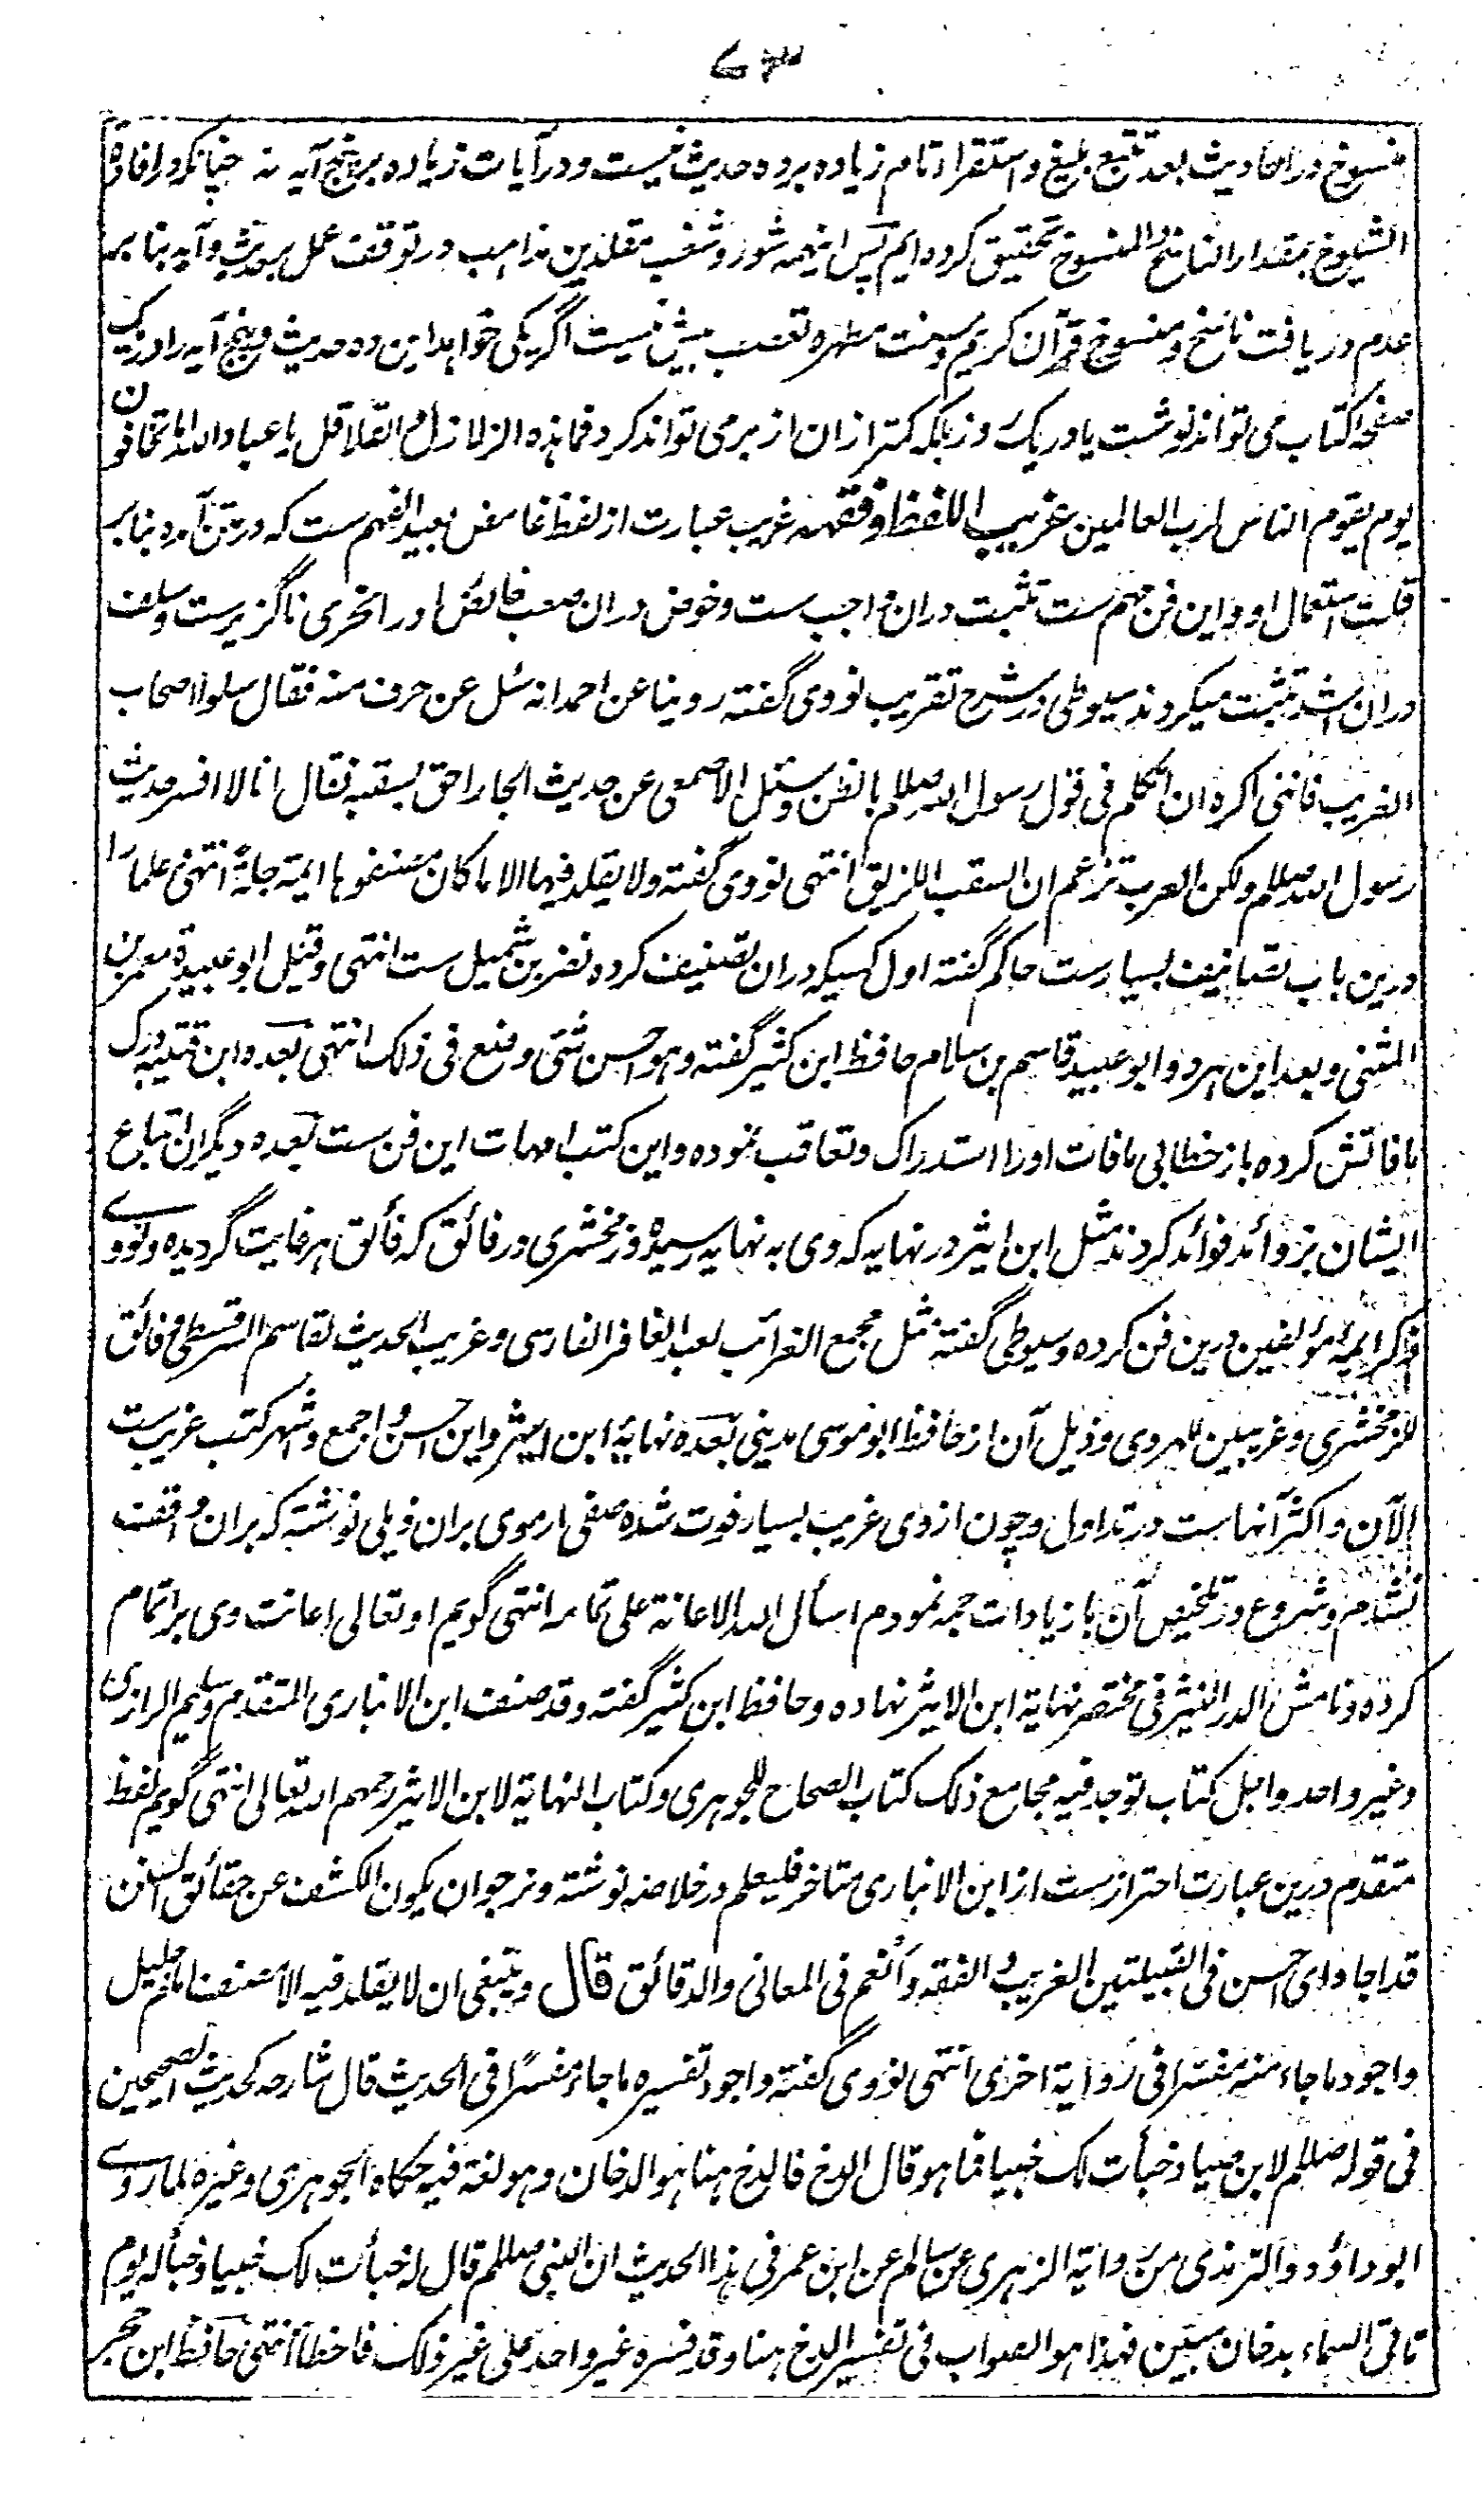 ۷۳
منسوخ در احادیث بعد تتبع بلیغ و استقراء تام زیاده بر ده حدیث نیست و در آیات زیاده بر پنج آیه نه چنانکه در افادة
الشیوخ بمقدار الناسخ والمنسوخ تحقیق کرده ایم پس اینهمه شور و شغب مقلدین مذاهب در توقف عمل بحدیث و آیه بنا بر
عدم دریافت ناسخ و منسوخ قرآن کریم و سنت مطهره تعصب بیش نیست اگر یکی خواهد این ده حدیث و پنج آیه را در یک
صفحه کتاب می تواند نوشت یا در یک روز بلکه کمتر ازان از بر می تواند کرد فما هذه الزلازل و القلاقل یا عباد الله اما تخافون
یوم یقوم الناس لرب العالمین غریب اللفظ و فقهه غریب عبارت از لفظ غامض بعید الفهم ست که در متن آمده بنا بر
قلت استعمال او و این فن مهم ست تثبت دران واجب ست و خوض دران صعب خائض را در تحری ناگزیر ست و سلف
دران اشد تثبت میکردند سیوطی در شرح تقریب نووی گفته روینا عن احمد انه سئل عن حرف منه فقال سلوا اصحاب
الغریب فاننی اکره ان اتکلم فی قول رسول الله صللم بالظن و سئل الاصمعی عن حدیث الجار احق بسقبه فقال انا لا افسر حدیث
رسول الله صللم ولکن العرب تزعم ان السقب اللزیق انتهی نووی گفته ولا یقلد فیها الا ما کان مصنفوها ایمة جلة انتهی علما را
درین باب تصانیف بسیار ست حاکم گفته اول کسیکه دران تصنیف کرده نضر بن شمیل ست انتهی و قیل ابو عبیدة معمر بن
المثنی و بعد این هر دو ابو عبید قاسم بن سلام حافظ ابن کثیر گفته و هو احسن شئ وضع فی ذلک انتهی بعده ابن قتیبه درک
ما فاتش کرده باز خطابی ما فات او را استدراک و تعاقب نموده و این کتب امهات این فن ست بعده دیگران اتباع
ایشان بزوائد فوائد کردند مثل ابن اثیر در نهایه که وی به نهایه رسیده و زمخشری در فائق که فائق هر غایت گردیده و نووے
ذکر ایمه مؤلفین درین فن کرده و سیوطی گفته مثل مجمع الغرائب لعبد الغافر الفارسی و غریب الحدیث لقاسم السرقسطی و فائق
للزمخشری و غریبین للهروی و ذیل آن از حافظ ابو موسی مدینی بعده نهایه ابن اثیر و این احسن و اجمع و اشهر کتب غریب ست
الآن و اکثر آنهاست در تداول و چون از وی غریب بسیار فوت شده صفی ارموی بران ذیلی نوشته که بران واقف
نشدم و شروع در تلخیص آن با زیادات جمه نمودم اسأل الله الاعانة علی تمامه انتهی گویم او تعالی اعانت وی بر اتمام
کرده و نامش الدر النثیر فی مختصر نهایة ابن الاثیر نهاده و حافظ ابن کثیر گفته و قد صنف ابن الانباری المتقدم و سلیم الرازی
و غیر واحد و اجل کتاب توجد فیه مجامع ذلک کتاب الصحاح للجوهری و کتاب النهایة لابن الاثیر رحمهم الله تعالی انتهی گویم لفظ
متقدم درین عبارت احتراز ست از ابن الانباری متاخر فلیعلم در خلاصه نوشته و نرجو ان یکون الکشف عن حقائق السنن
قد اجاد ای احسن فی القبیلتین الغریب و الفقه و أنعم فی المعانی و الدقائق قال وینبغی ان لا یقلد فیه الا مصنفا امام جلیل
و اجود ما جاء منه مفسرا فی روایة اخری انتهی نووی گفته و اجود تفسیره ما جاء مفسرًا فی الحدیث قال شارحه کحدیث الصحیحین
فی قوله صللم لابن صیاد خبأت لک خبیا فما هو قال الدخ فالدخ هنا هو الدخان و هو لغة فیه حکاه الجوهری و غیره لما روے
ابو داؤد و الترمذی من روایة الزهری عن سالم عن ابن عمر فی هذا الحدیث ان النبی صللم قال له خبأت لک خبیا و خبأ له یوم
تأتی السماء بدخان مبین فهذا هو الصواب فی تفسیر الدخ هنا و قد فسره غیر واحد علی غیر ذلک فاخطأ انتهی حافظ ابن حجر